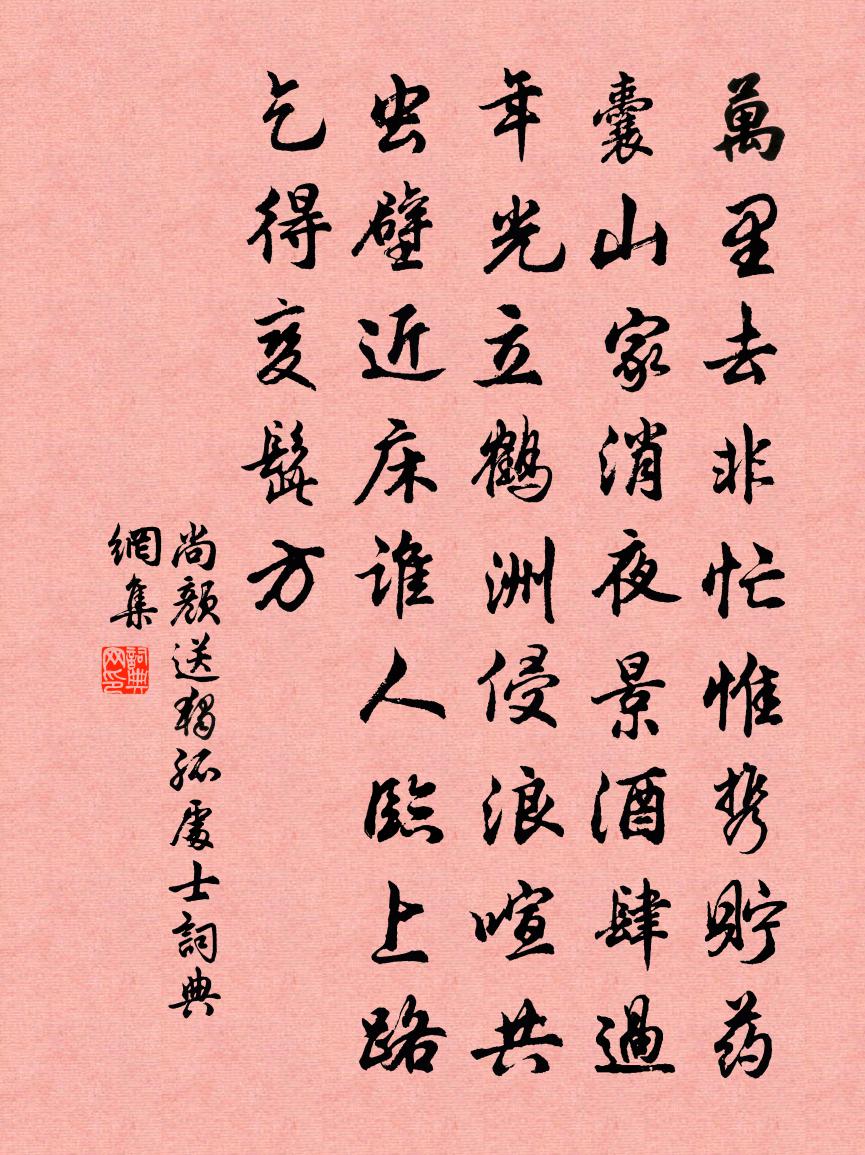 萬里去非忙惟携貯药
囊山家消夜景酒肆過
年光立鶴洲侵浪喧共
虫壁近床谁人臨上路
乞得变髭方
尚顏送獨孤處士詞典
網集
詞典網印